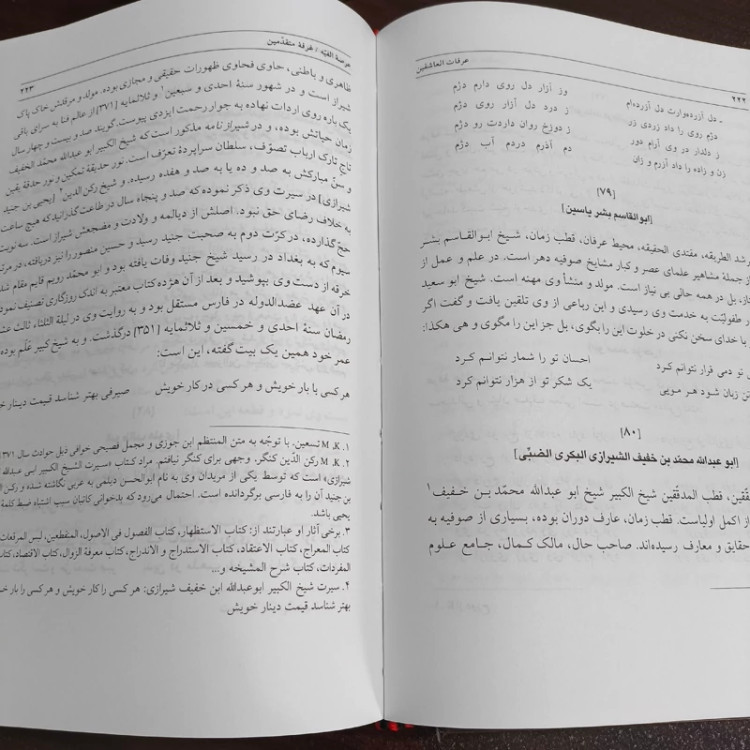 ۲۲۲
عرفات العاشقین
ـ دل آزرده‌وارت دل آزرده‌ام
وز آزار دل روی دارم دژم
دژم روی را داد زردی زر
ز درد دل آزار روی دژم
ز دلدار در وی آرام دور
ز دوزخ روان داردت رو دژم
زن و زاده را داد آزرم و زان
دم آذرم دردم آب دژم
[۷۹]
[ابوالقاسم بشر یاسین]
رشد الطریقه، مقتدی الحقیقه، محیط عرفان، قطب زمان، شیخ ابوالقاسم بشر
از جملهٔ مشاهیر علمای عصر و کبار مشایخ صوفیه دهر است. در علم و عمل از
باز، بل در همه حالی بی نیاز است. مولد و منشأ وی مهنه است. شیخ ابو سعید
در طفولیّت به خدمت وی رسیدی و این رباعی از وی تلقین یافت و گفت اگر
با خدای سخن نکنی در خلوت این را بگوی، بل جز این را مگوی و هی هکذا:
تو دمی قرار نتوانم کرد
احسان تو را شمار نتوانم کرد
تن زبان شود هر مویی
یک شکر تو از هزار نتوانم کرد
[۸۰]
[ابو عبدالله محمّد بن خفیف الشیرازی البکری الضبّی]
قین، قطب المدقّقین شیخ الکبیر شیخ ابو عبدالله محمّد بن خفیف۱
از اکمل اولیاست. قطب زمان، عارف دوران بوده، بسیاری از صوفیه به
حقایق و معارف رسیده‌اند. صاحب حال، مالک کمال، جامع علوم
عرصة الفیه / غرفهٔ متقدّمین
۲۲۳
ظاهری و باطنی، حاوی فحاوی ظهورات حقیقی و مجازی بوده. مولد و مرقدش خاک پاک
شیراز است و در شهور سنهٔ احدی و سبعین۱ و ثلاثمایه [۳۷۱] از عالم فنا به سرای باقی
یک باره روی ارادت نهاده به جوار رحمت ایزدی پیوست. گویند صد و بیست و چهار سال
زمان حیاتش بوده، و در شیرازنامه مذکور است که شیخ الکبیر ابو عبدالله محمّد الخفیف
تاج تارک ارباب تصوّف، سلطان سراپردهٔ تعزّف است. نور حدیقهٔ تمکین و نور حدقهٔ یقین
و سنّ مبارکش به صد و ده یا به صد و هفده رسیده. و شیخ رکن الدین۲ [یحیی بن جنید
شیرازی] در سیرت وی ذکر نموده که صد و پنجاه سال در طاعت گذرانید که هیچ ساعت
به خلاف رضای حق نبود. اصلش از دیالمه و ولادت و مضجعش شیراز است. سه نوبت
حجّ گذارده، در کرّت دوم به صحبت جنید رسید و حسین منصور را نیز دریافته،
سیوم که به بغداد در رسید شیخ جنید وفات یافته بود و ابو محمّد رویم قایم مقام
خرقه از دست وی بپوشید و بعد از آن هژده کتاب معتبر به اندک روزگاری تصنیف
در آن عهد عضدالدوله در فارس مستقل بود و به روایت وی در لیلة الثلثا، ثالث
رمضان سنهٔ احدی و خمسین و ثلاثمایه [۳۵۱] درگذشت. و به شیخ کبیر عَلَم بوده
عمر خود همین یک بیت گفته، این است:
هر کسی با بار خویش و هر کسی در کار خویش
صیرفی بهتر شناسد قیمت دینار
۱. M ،K تسعین. با توجّه به متن المنتظم ابن جوزی و مجمل فصیحی خوافی ذیل حوادث سال ۳۷۱
۲. M ،K رکن الدّین کنگر. وجهی برای کنگر نیافتم. مراد کتاب «سیرت الشیخ الکبیر ابی عبدالله
شیرازی» است که توسط یکی از مریدان وی به نام ابوالحسن دیلمی به عربی نگاشته شده و رکن
بن جنید آن را به فارسی برگردانده است. احتمال می‌رود که بدخوانی کاتبان سبب اشتباه ضبط کلمه
یحیی باشد.
۳. برخی آثار او عبارتند از: کتاب الاستظهار، کتاب الفصول فی الاصول، المنقطعین، لبس المرقعات
کتاب المعراج، کتاب الاعتقاد، کتاب الاستدراج و الاندراج، کتاب معرفة الزوال، کتاب الاقتصاد،
المفردات، کتاب شرح المشیخه و...
۴. سیرت شیخ الکبیر ابوعبدالله ابن خفیف شیرازی: هر کسی را کار خویش و هر کسی را
بهتر شناسد قیمت دینار خویش